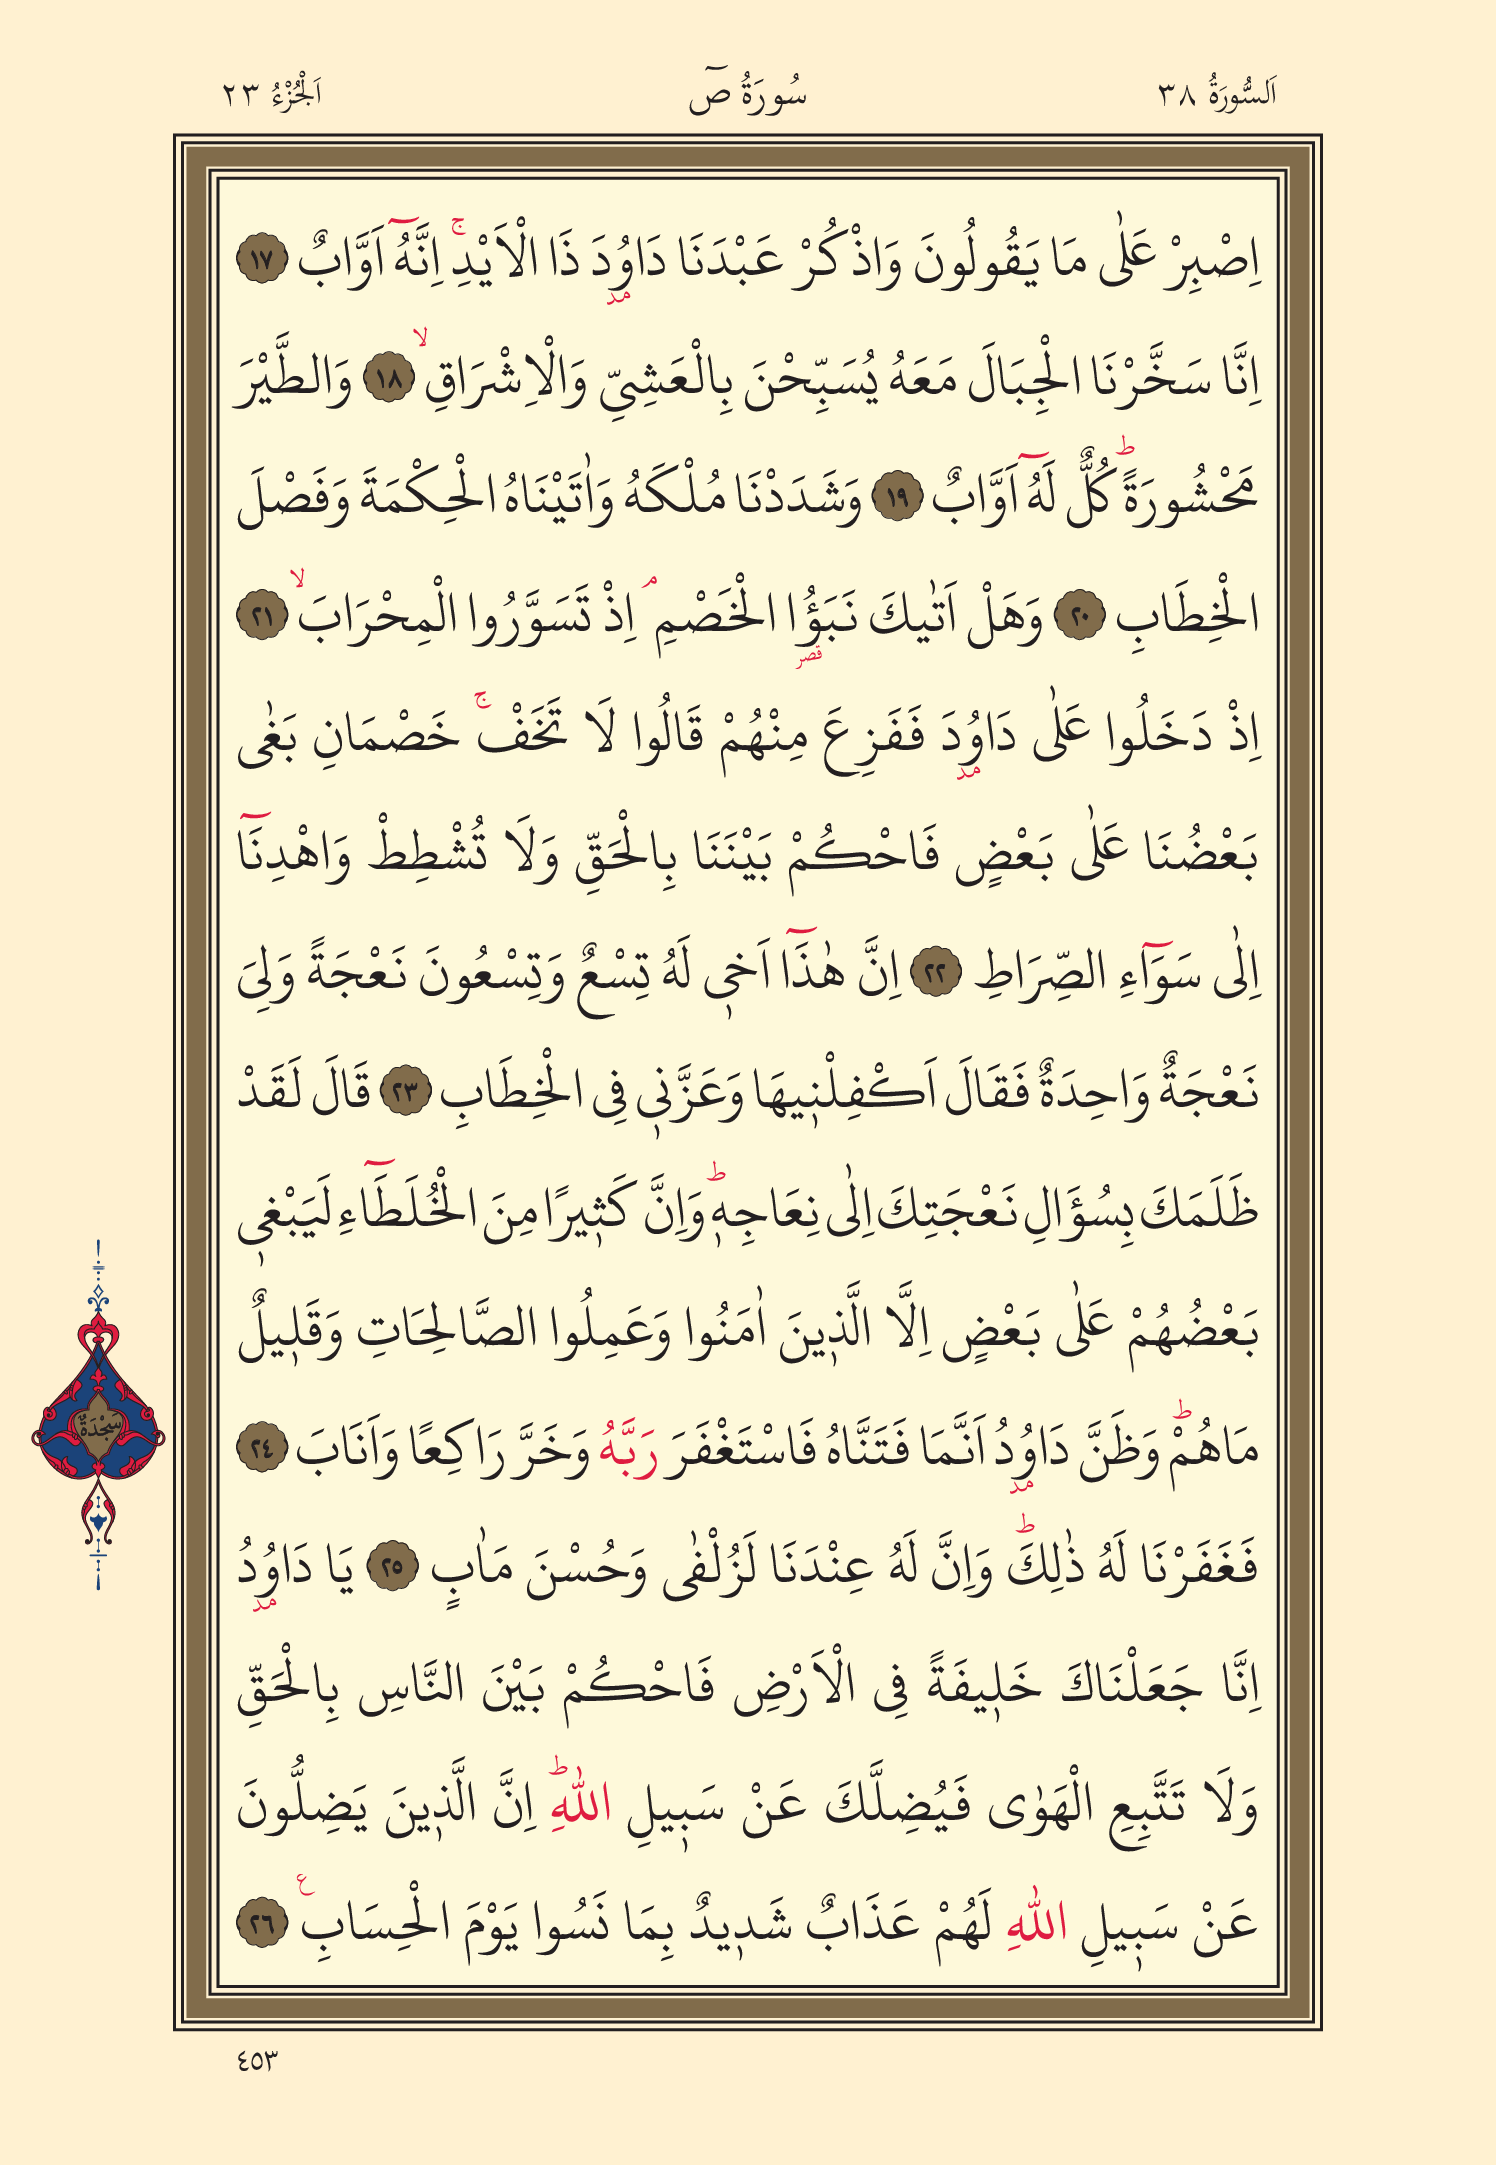 اَلسُّورَةُ ٣٨
سُورَةُ صٓ
اَلْجُزْءُ ٢٣
اِصْبِرْ عَلٰى مَا يَقُولُونَ وَاذْكُرْ عَبْدَنَا دَاوُدَ ذَا الْاَيْدِۚ اِنَّهُٓ اَوَّابٌ ١٧
مد
اِنَّا سَخَّرْنَا الْجِبَالَ مَعَهُ يُسَبِّحْنَ بِالْعَشِيِّ وَالْاِشْرَاقِۙ ١٨ وَالطَّيْرَ
مَحْشُورَةًۜ كُلٌّ لَهُٓ اَوَّابٌ ١٩ وَشَدَدْنَا مُلْكَهُ وَاٰتَيْنَاهُ الْحِكْمَةَ وَفَصْلَ
الْخِطَابِ ٢٠ وَهَلْ اَتٰيكَ نَبَؤُا الْخَصْمِۢ اِذْ تَسَوَّرُوا الْمِحْرَابَۙ ٢١
قصر
اِذْ دَخَلُوا عَلٰى دَاوُدَ فَفَزِعَ مِنْهُمْ قَالُوا لَا تَخَفْۚ خَصْمَانِ بَغٰى
مد
بَعْضُنَا عَلٰى بَعْضٍ فَاحْكُمْ بَيْنَنَا بِالْحَقِّ وَلَا تُشْطِطْ وَاهْدِنَٓا
اِلٰى سَوَٓاءِ الصِّرَاطِ ٢٢ اِنَّ هٰذَٓا اَخ۪ي لَهُ تِسْعٌ وَتِسْعُونَ نَعْجَةً وَلِيَ
نَعْجَةٌ وَاحِدَةٌ فَقَالَ اَكْفِلْن۪يهَا وَعَزَّن۪ي فِي الْخِطَابِ ٢٣ قَالَ لَقَدْ
ظَلَمَكَ بِسُؤَالِ نَعْجَتِكَ اِلٰى نِعَاجِه۪ۜ وَاِنَّ كَث۪يرًا مِنَ الْخُلَطَٓاءِ لَيَبْغ۪ي
بَعْضُهُمْ عَلٰى بَعْضٍ اِلَّا الَّذ۪ينَ اٰمَنُوا وَعَمِلُوا الصَّالِحَاتِ وَقَل۪يلٌ
مَاهُمْۜ وَظَنَّ دَاوُدُ اَنَّمَا فَتَنَّاهُ فَاسْتَغْفَرَ رَبَّهُ وَخَرَّ رَاكِعًا وَاَنَابَ ٢٤
مد
سَجْدَةٌ
فَغَفَرْنَا لَهُ ذٰلِكَۜ وَاِنَّ لَهُ عِنْدَنَا لَزُلْفٰى وَحُسْنَ مَاٰبٍ ٢٥ يَا دَاوُدُ
مد
اِنَّا جَعَلْنَاكَ خَل۪يفَةً فِي الْاَرْضِ فَاحْكُمْ بَيْنَ النَّاسِ بِالْحَقِّ
وَلَا تَتَّبِعِ الْهَوٰى فَيُضِلَّكَ عَنْ سَب۪يلِ اللّٰهِۜ اِنَّ الَّذ۪ينَ يَضِلُّونَ
عَنْ سَب۪يلِ اللّٰهِ لَهُمْ عَذَابٌ شَد۪يدٌ بِمَا نَسُوا يَوْمَ الْحِسَابِ ع ٢٦
٤٥٣